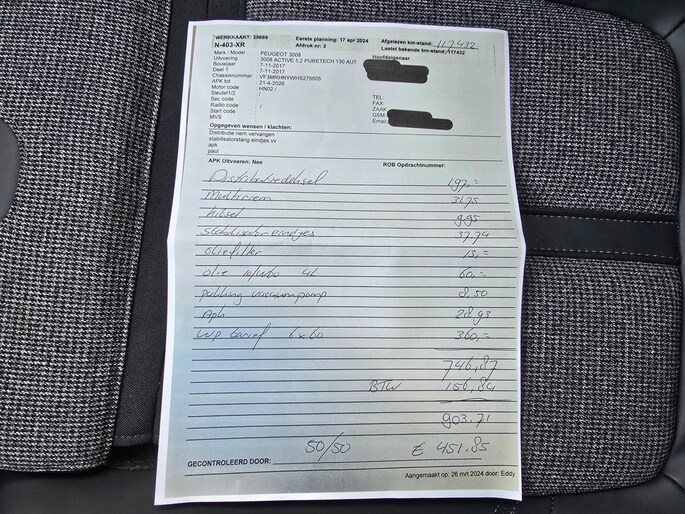 WERKKAART: 28889 Eerste planning: 17 apr 2024 Afgelezen km-stand: 117432
N-403-XR Afdruk nr: 2 Laatst bekende km-stand: 117432
Merk / Model : PEUGEOT 3008 Hoofdeigenaar
Uitvoering : 3008 ACTIVE 1.2 PURETECH 130 AUT
Bouwjaar : 7-11-2017
Deel 1 : 7-11-2017
Chassisnummer : VF3MRHNYWHS275605
APK tot : 21-4-2026
Motor code : HN02 / TEL:
Sleutel1/2 : / FAX
Sec code : ZAAK
Radio code : / GSM
Start code : Email
MVS
Opgegeven wensen / klachten:
Distributie riem vervangen
stabilisatorstang eindjes vv
apk
paul
APK Uitvoeren: Nee ROB Opdrachtnummer:
Distributieriem 197,=
Multiriem 31.75
9.95
Stabilisator eindjes 37,74
Oliefilter 13,=
olie 4L 60,=
pakking vacuumpomp 8,50
Apk 28,93
tarief 6x60 360,=
746,87
BTW 156,84
903.71
50/50 £ 451.85
GECONTROLEERD DOOR:
Aangemaakt op: 26 mrt 2024 door: Eddy